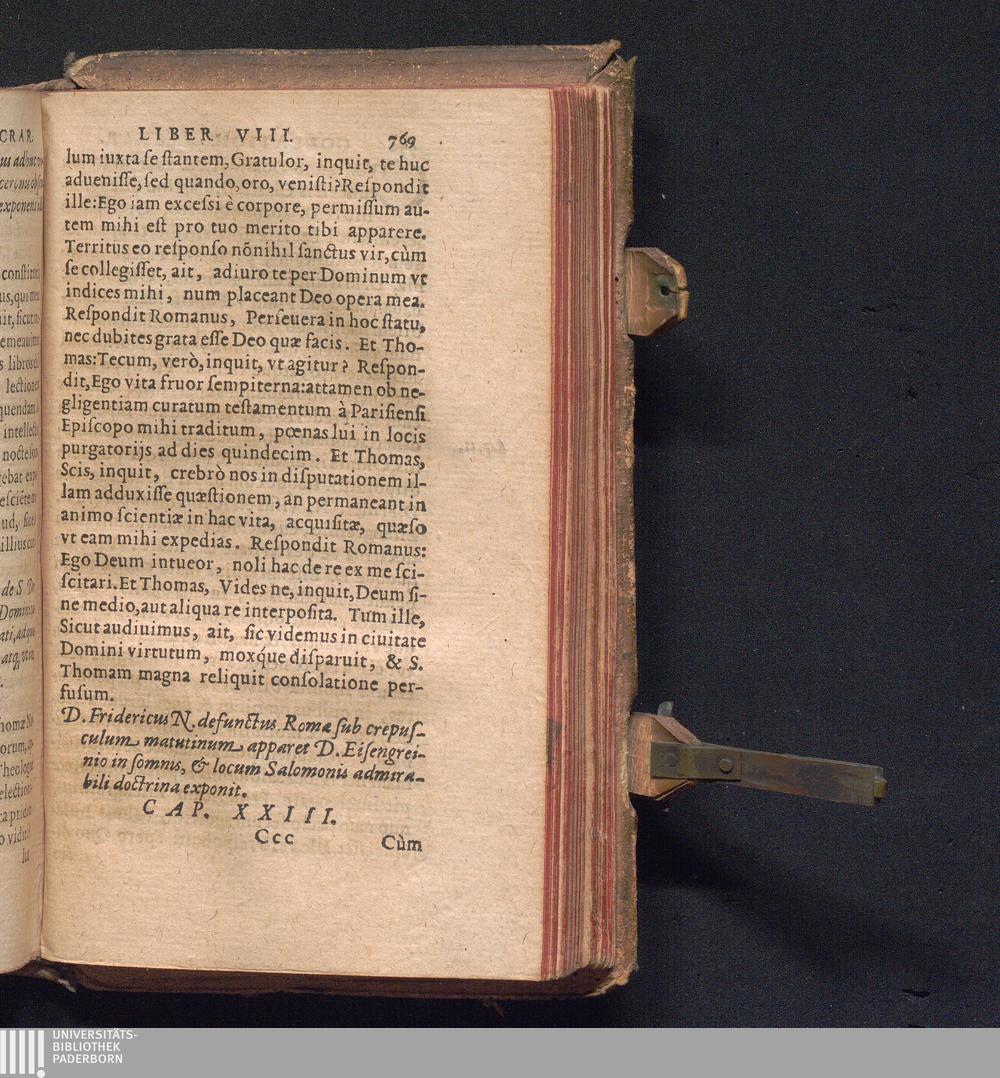 LIBER VIII. 769
lum iuxta ſe ſtantem, Gratulor, inquit, te huc
adueniſſe, ſed quando, oro, veniſti? Reſpondit
ille: Ego iam exceſsi è corpore, permiſſum au-
tem mihi eſt pro tuo merito tibi apparere.
Territus eo reſponſo nõnihil ſanctus vir, cùm
ſe collegiſſet, ait, adiuro te per Dominum vt
indices mihi, num placeant Deo opera mea.
Reſpondit Romanus, Perſeuera in hoc ſtatu,
nec dubites grata eſſe Deo quæ facis. Et Tho-
mas: Tecum, verò, inquit, vt agitur? Reſpon-
dit, Ego vita fruor ſempiterna: attamen ob ne-
gligentiam curatum teſtamentum à Pariſienſi
Epiſcopo mihi traditum, pœnas lui in locis
purgatorijs ad dies quindecim. Et Thomas,
Scis, inquit, crebrò nos in diſputationem il-
lam adduxiſſe quæſtionem, an permaneant in
animo ſcientiæ in hac vita, acquiſitæ, quæſo
vt eam mihi expedias. Reſpondit Romanus:
Ego Deum intueor, noli hac de re ex me ſci-
ſcitari. Et Thomas, Vides ne, inquit, Deum ſi-
ne medio, aut aliqua re interpoſita. Tum ille,
Sicut audiuimus, ait, ſic videmus in ciuitate
Domini virtutum, moxq́ue diſparuit, & S.
Thomam magna reliquit conſolatione per-
fuſum.
D. Fridericus N. defunctus Romæ ſub crepuſ-
culum matutinum apparet D. Eiſengrei-
nio in ſomnis, & locum Salomonis admira-
bili doctrina exponit.
CAP. XXIII.
Ccc Cùm
UNIVERSITÄTS-
BIBLIOTHEK
PADERBORN